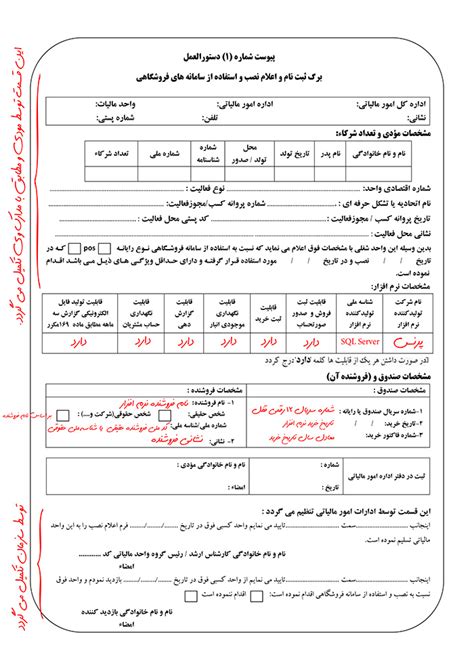 پیوست شماره (۱) دستورالعمل
برگ ثبت نام و اعلام نصب و استفاده از سامانه های فروشگاهی
اداره کل امور مالیاتی: اداره امور مالیاتی: واحد مالیات:
نشانی: تلفن: شماره پستی:
مشخصات مؤدی و تعداد شرکاء:
نام و نام خانوادگی نام پدر تاریخ تولد محل تولد / صدور شماره شناسنامه شماره ملی تعداد شرکاء
شماره اقتصادی واحد: نوع فعالیت :
نام اتحادیه یا تشکل حرفه ای : شماره پروانه کسب/مجوزفعالیت:
تاریخ پروانه کسب / مجوزفعالیت : کد پستی محل فعالیت :
نشانی محل فعالیت :
بدین وسیله این واحد شغلی با مشخصات فوق اعلام می نماید که نسبت به استفاده از سامانه فروشگاهی نوع رایانه pos که در
تاریخ / / نصب و در تاریخ / / مورد استفاده قرار گرفته و دارای حداقل ویژگی های ذیل می باشد اقدام
نموده است.
مشخصات نرم افزار:
نام شرکت تولیدکننده نرم افزار شناسه ملی تولیدکننده نرم افزار قابلیت فروش و صدور صورتحساب قابلیت ثبت خرید قابلیت نگهداری موجودی انبار قابلیت گزارش دهی قابلیت نگهداری حساب مشتریان قابلیت تولید فایل الکترونیکی گزارش سه ماهه مطابق ماده ۱۶۹مکرر
SQL Server دارد دارد دارد دارد دارد دارد
در صورت داشتن هر یک از قابلیت ها کلمه دارد درج گردد
مشخصات صندوق و (فروشنده آن)
مشخصات صندوق : مشخصات فروشنده :
۱-شماره سریال صندوق یا رایانه : شماره سریال ۱۲ رقمی قفل
۲-تاریخ خرید : تاریخ خرید نرم افزار
۳-شماره فاکتور خرید: معادل سال تاریخ خرید
۱- نام فروشنده : نام فروشنده نرم افزار
شخص حقیقی: شخص حقوقی(شرکت و...) :
شماره ملی/شناسه ملی: کد ملی فروشنده حقیقی یا شناسه ملی حقوقی
۲- نشانی: نشانی فروشنده
بر اساس نام فروشنده
ثبت در دفتر اداره امور مالیاتی شماره : تاریخ : نام و نام خانوادگی مؤدی :
امضاء :
این قسمت توسط ادارات امور مالیاتی تنظیم می گردد :
اینجانب سمت تایید می نمایم واحد کسبی فوق در تاریخ / / فرم اعلام نصب را به این واحد
مالیاتی تسلیم نموده است.
نام و نام خانوادگی کارشناس ارشد / رئیس گروه واحد مالیاتی کد
امضاء
اینجانب سمت تایید می نمایم که از واحد کسبی فوق در تاریخ / / بازدید نمودم و واحد فوق
نسبت به نصب و استفاده از سامانه فروشگاهی اقدام نموده است اقدام ننموده است
نام و نام خانوادگی بازدید کننده
امضاء
این قسمت توسط مودی و مطابق با مدارک وی تکمیل می گردد.
توسط سازمان تکمیل می گردد